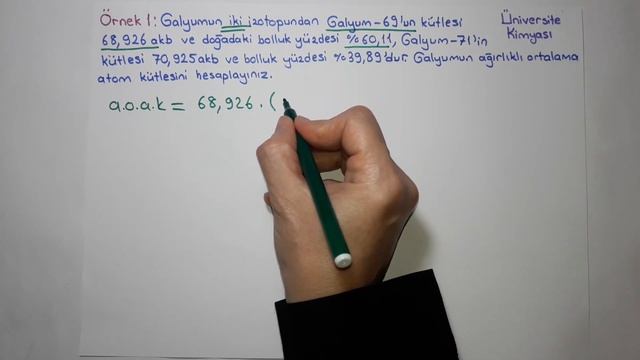 Örnek 1: Galyumun iki izotopundan Galyum-69'un kütlesi
68,926 akb ve doğadaki bolluk yüzdesi %60,11, Galyum-71'in
kütlesi 70,925akb ve bolluk yüzdesi %39,89'dur. Galyumun ağırlıklı ortalama
atom kütlesini hesaplayınız.
Üniversite
Kimyası
a.o.a.k = 68,926 . (